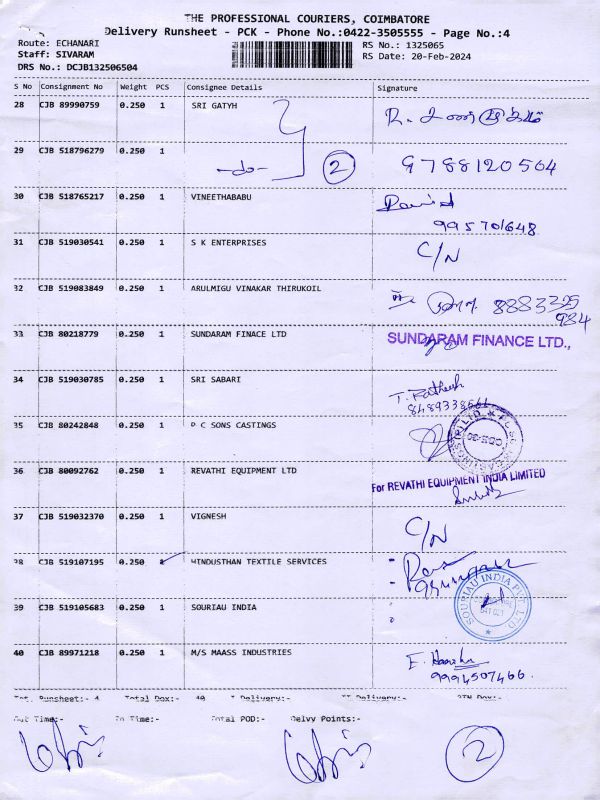 THE PROFESSIONAL COURIERS, COIMBATORE
Delivery Runsheet - PCK - Phone No.:0422-3505555 - Page No.:4
Route: ECHANARI
RS No.: 1325065
Staff: SIVARAM
RS Date: 20-Feb-2024
DRS No.: DCJB132506504
S No Consignment No Weight PCS Consignee Details Signature
28 CJB 89990759 0.250 1 SRI GATYH
29 CJB 518796279 0.250 1 -do- 2 9788120564
30 CJB 518765217 0.250 1 VINEETHABABU David
995701648
31 CJB 519030541 0.250 1 S K ENTERPRISES C/N
32 CJB 519083849 0.250 1 ARULMIGU VINAKAR THIRUKOIL 8883325
934
33 CJB 80218779 0.250 1 SUNDARAM FINACE LTD SUNDARAM FINANCE LTD.,
34 CJB 519030785 0.250 1 SRI SABARI T. Ratheesh
8489338561
35 CJB 80242848 0.250 1 D C SONS CASTINGS
36 CJB 80092762 0.250 1 REVATHI EQUIPMENT LTD For REVATHI EQUIPMENT INDIA LIMITED
37 CJB 519032370 0.250 1 VIGNESH C/N
38 CJB 519107195 0.250 HINDUSTHAN TEXTILE SERVICES
39 CJB 519105683 0.250 1 SOURIAU INDIA SOURIAU INDIA PVT. LTD.
40 CJB 89971218 0.250 1 M/S MAASS INDUSTRIES E. Harish
9994507466.
Tot. Runsheet:- 4 Total Dox:- 40 I Delivery:- II Delivery:-
Out Time:- In Time:- Total POD:- Delvy Points:-
2